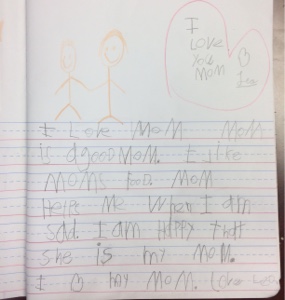 I
LOVE
YOU
MOM
I LOVE MOM MOM
is a good MOM. I like
MOMS food. MOM
Helps Me when I am
sad. I am Happy that
she is my MOM.
I my MOM.